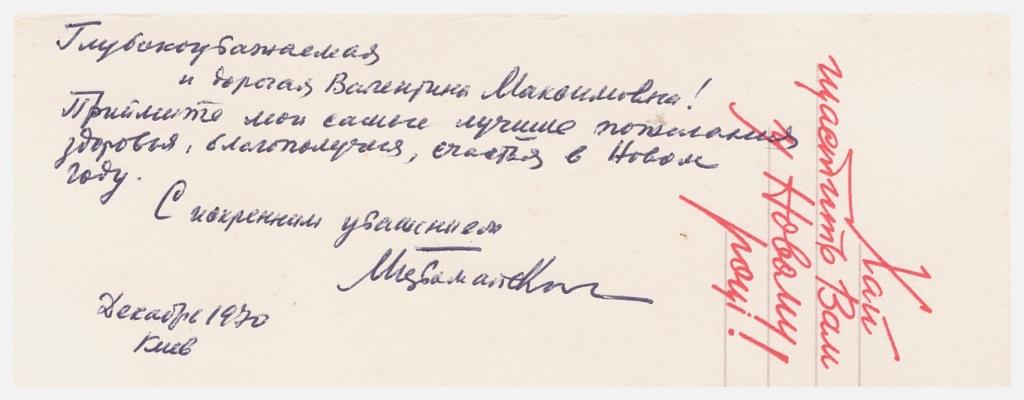 Глубокоуважаемая
и дорогая Валентина Максимовна!
Примите мои самые лучшие пожелания
здоровья, благополучия, счастья в Новом
году.
С искренним уважением
Декабрь 1970
Киев
Хай
щастить Вам
у Новому
році!